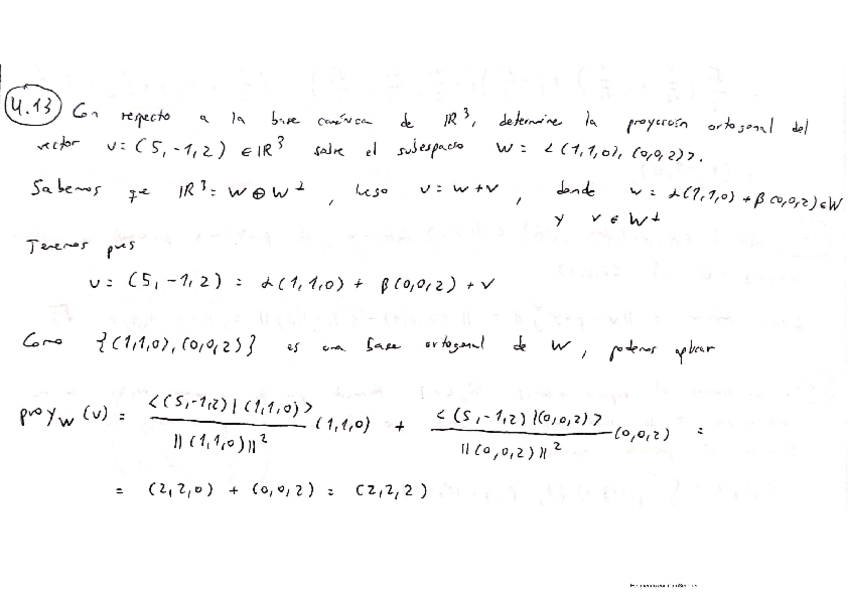 4.13 Con respecto a la base canónica de IR³, determine la proyección ortogonal del
vector u = (5, -1, 2) ∈ IR³ sobre el subespacio W = <(1,1,0), (0,0,2)>.
Sabemos que IR³ = W ⊕ W⊥, luego u = w + v, donde w = α(1,1,0) + β(0,0,2) ∈ W
y v ∈ W⊥
Tenemos pues
u = (5, -1, 2) = α(1,1,0) + β(0,0,2) + v
Como {(1,1,0), (0,0,2)} es una base ortogonal de W, podemos aplicar
proy_W (u) = <(5,-1,2) | (1,1,0)> / ||(1,1,0)||² (1,1,0) + <(5,-1,2) | (0,0,2)> / ||(0,0,2)||² (0,0,2) =
= (2,2,0) + (0,0,2) = (2,2,2)